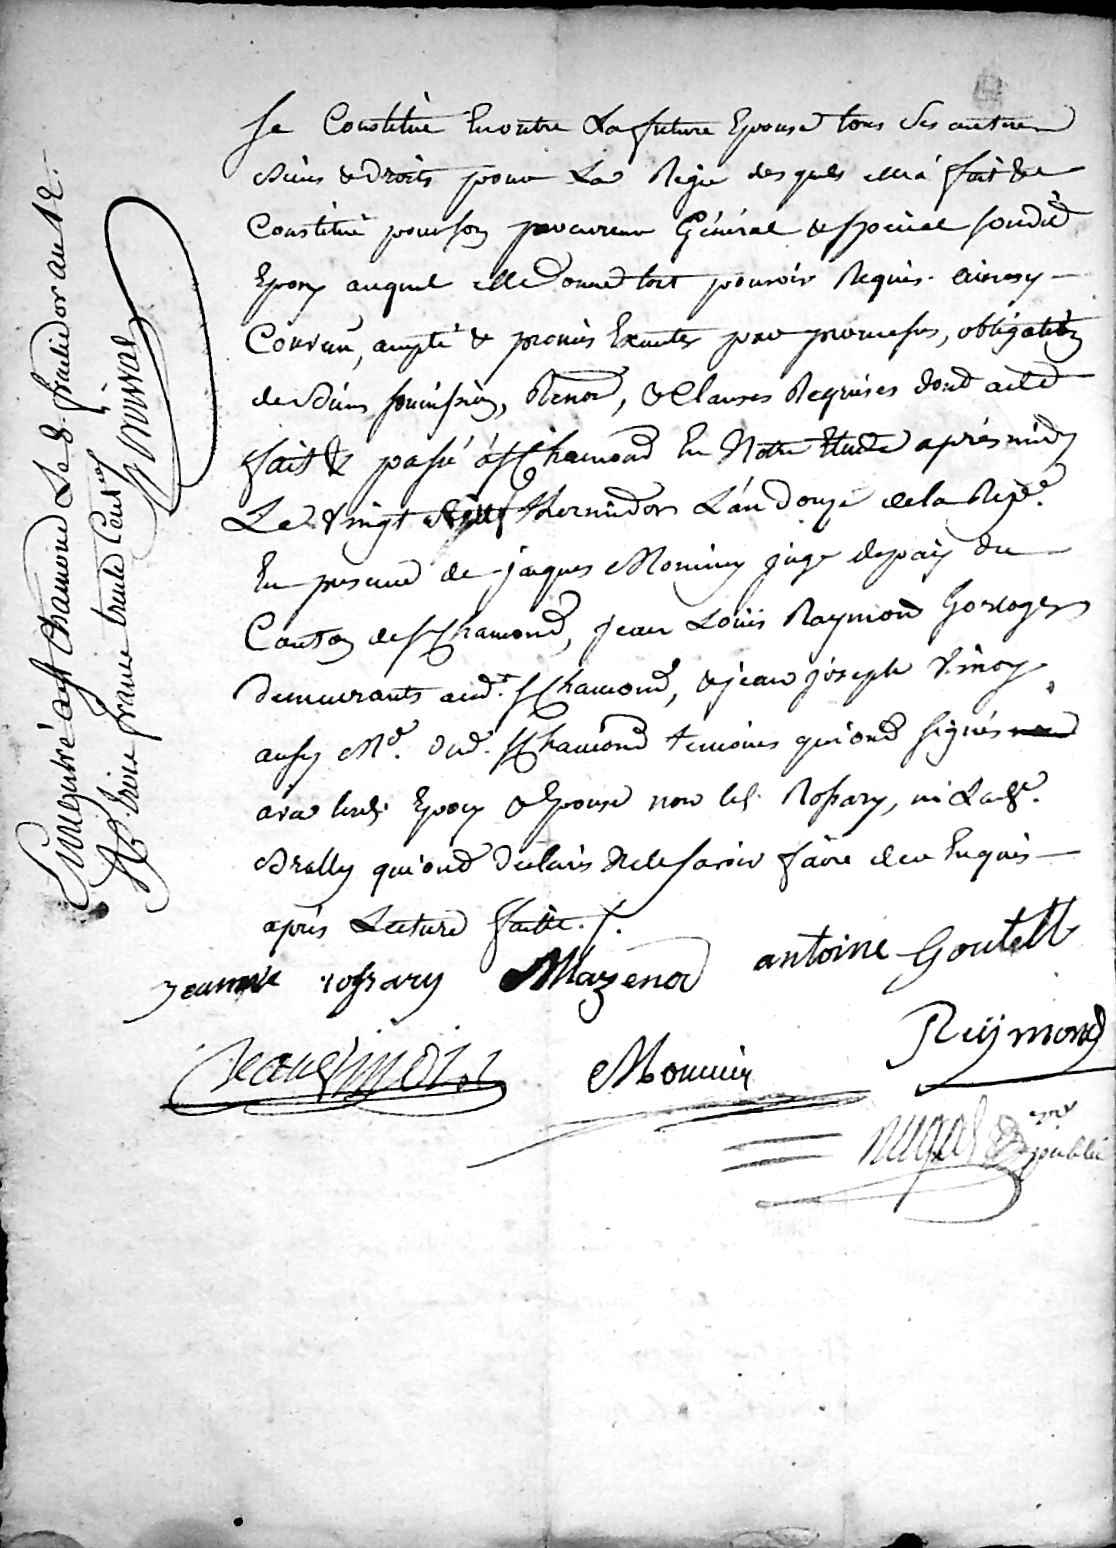 Se Constitue En outre La future Epouse tous Ses autres
Biens & droits pour La Regie desquels elle a fait &
Constitué pour son procureur Général & special sondit
Epoux auquel elle donne tout pouvoir Requis. ainsy
Convenu, accepté & promis Executer par promesses, obligation
de Biens soumission, Renon, & Clauses Requises dont acte
fait & passé à St Chamond En Notre Etude après midy
Le Vingt Thermidor L'an Douze de la Repe.
En presence de jaques Monniny juge de paix du
Canton de St Chamond, jean Loüis Raymond horloger
demeurants aud. St Chamond, & jean joseph Vinoy
aussy Md. dud. St Chamond temoins qui ont signés
avec lesd. Epoux & Epouse non led. Rossary, ni Lade.
Brally qui ont declarés Ne le savoir faire de ce Enquis
après Lecture faitte./.
jeanne rossary Mazenod antoine Goutelle
Jean Vinoi Monniny Reymond
public
Enregistré a St Chamond Le 8. fructidor an 12.
Rx. trois francs trente Centes